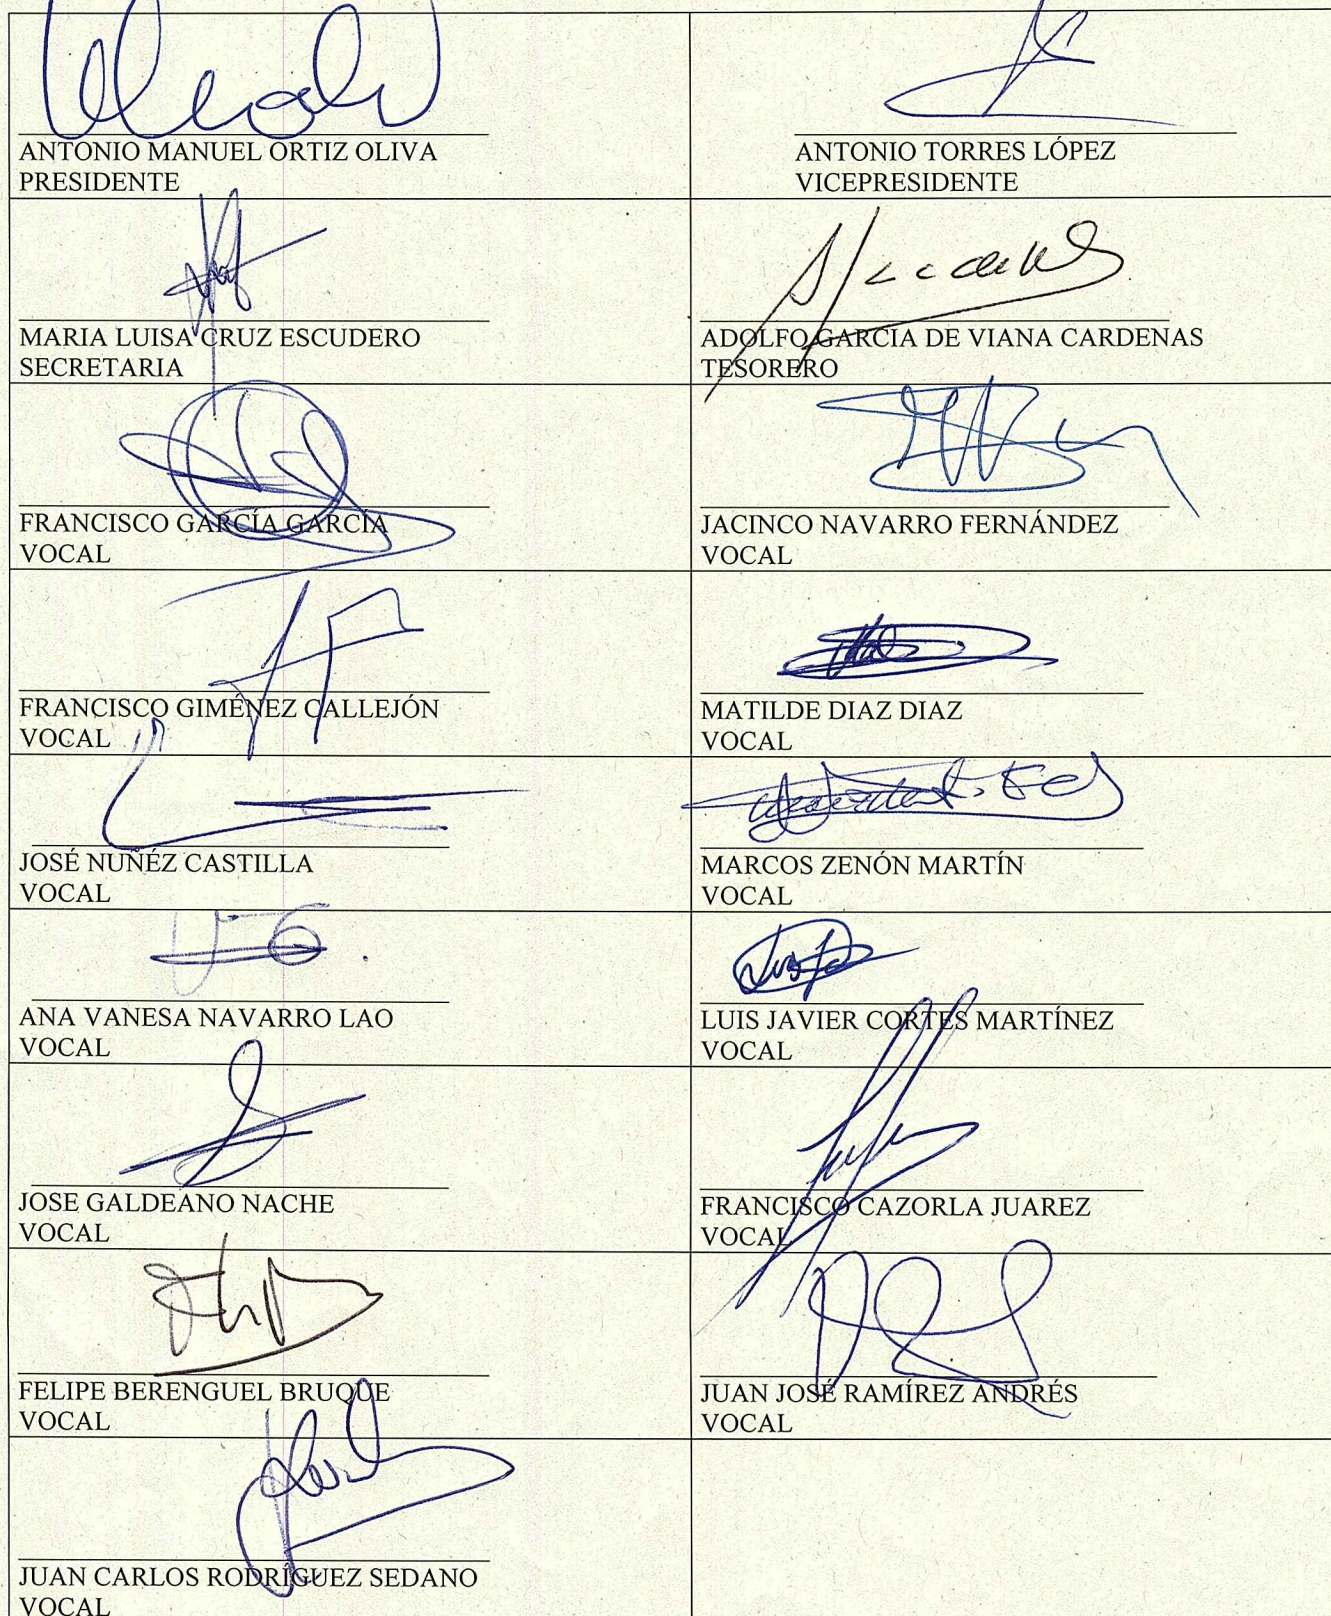 ANTONIO MANUEL ORTIZ OLIVA
PRESIDENTE
ANTONIO TORRES LÓPEZ
VICEPRESIDENTE
MARIA LUISA CRUZ ESCUDERO
SECRETARIA
ADOLFO GARCIA DE VIANA CARDENAS
TESORERO
FRANCISCO GARCÍA GARCÍA
VOCAL
JACINCO NAVARRO FERNÁNDEZ
VOCAL
FRANCISCO GIMÉNEZ CALLEJÓN
VOCAL
MATILDE DIAZ DIAZ
VOCAL
JOSÉ NUÑÉZ CASTILLA
VOCAL
MARCOS ZENÓN MARTÍN
VOCAL
ANA VANESA NAVARRO LAO
VOCAL
LUIS JAVIER CORTES MARTÍNEZ
VOCAL
JOSE GALDEANO NACHE
VOCAL
FRANCISCO CAZORLA JUAREZ
VOCAL
FELIPE BERENGUEL BRUQUE
VOCAL
JUAN JOSÉ RAMÍREZ ANDRÉS
VOCAL
JUAN CARLOS RODRÍGUEZ SEDANO
VOCAL